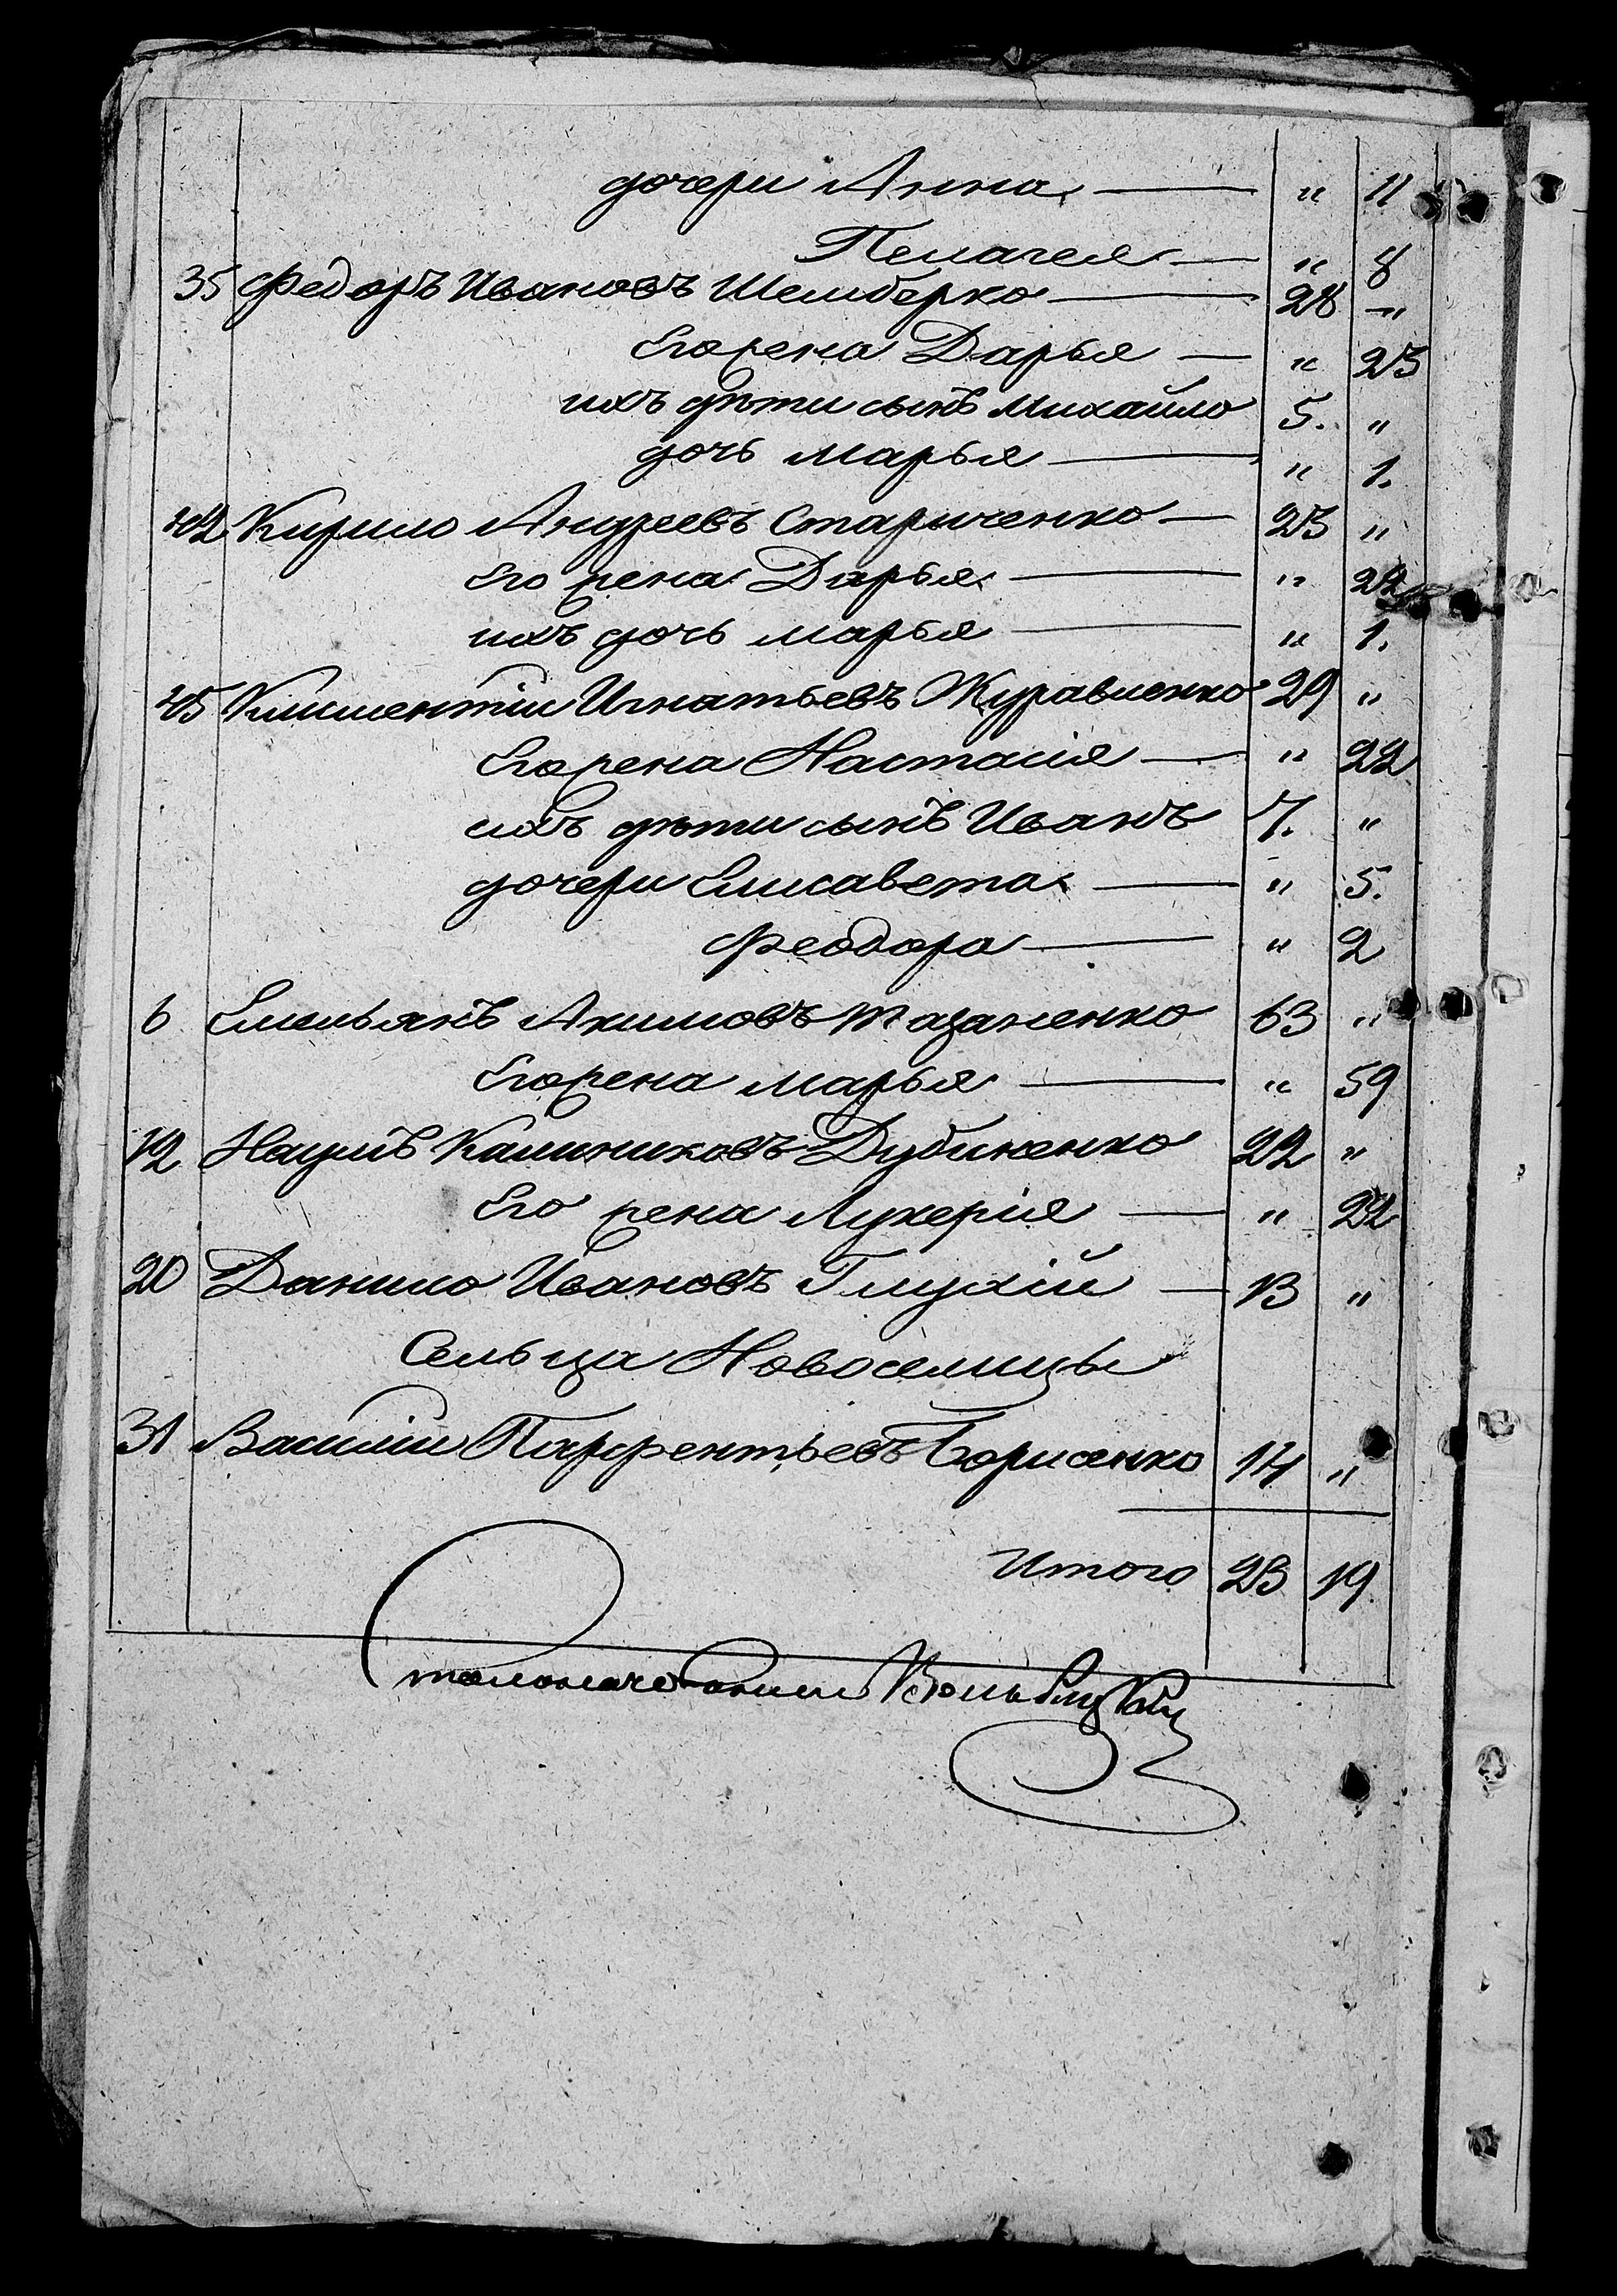 дочери Анна — " 11
Пелагея — " 8
35 Федоръ Ивановъ Шемберко — 28 — "
Его жена Дарья — " 23
ихъ дѣти сынъ Михайло 5. "
дочь Марья — " 1.
42 Кирило Андреевъ Стариченко — 23 "
Его жена Дарья — " 22
ихъ дочь Марья — " 1.
45 Климентій Игнатьевъ Журавленко 29 "
Его жена Настасія — " 22
ихъ дѣти сынъ Иванъ 7. "
дочери Елисавета — " 5.
Феодора — " 2
6 Емельянъ Акимовъ Тацаненко 63 "
Его жена Марья — " 59
12 Наумъ Калиниковъ Дубиненко 22 "
Его жена Лукерія — " 22
20 Данило Ивановъ Глухій — 13 "
Сельца Новоселицы
31 Василій Парфентьевъ Борисенко 14 "
Итого 23 19
Столоначальникъ